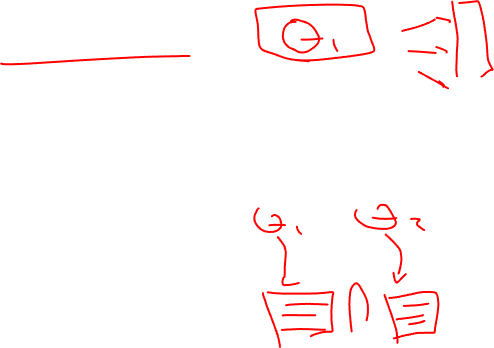 Θ₁
Θ₁ Θ₂
∩